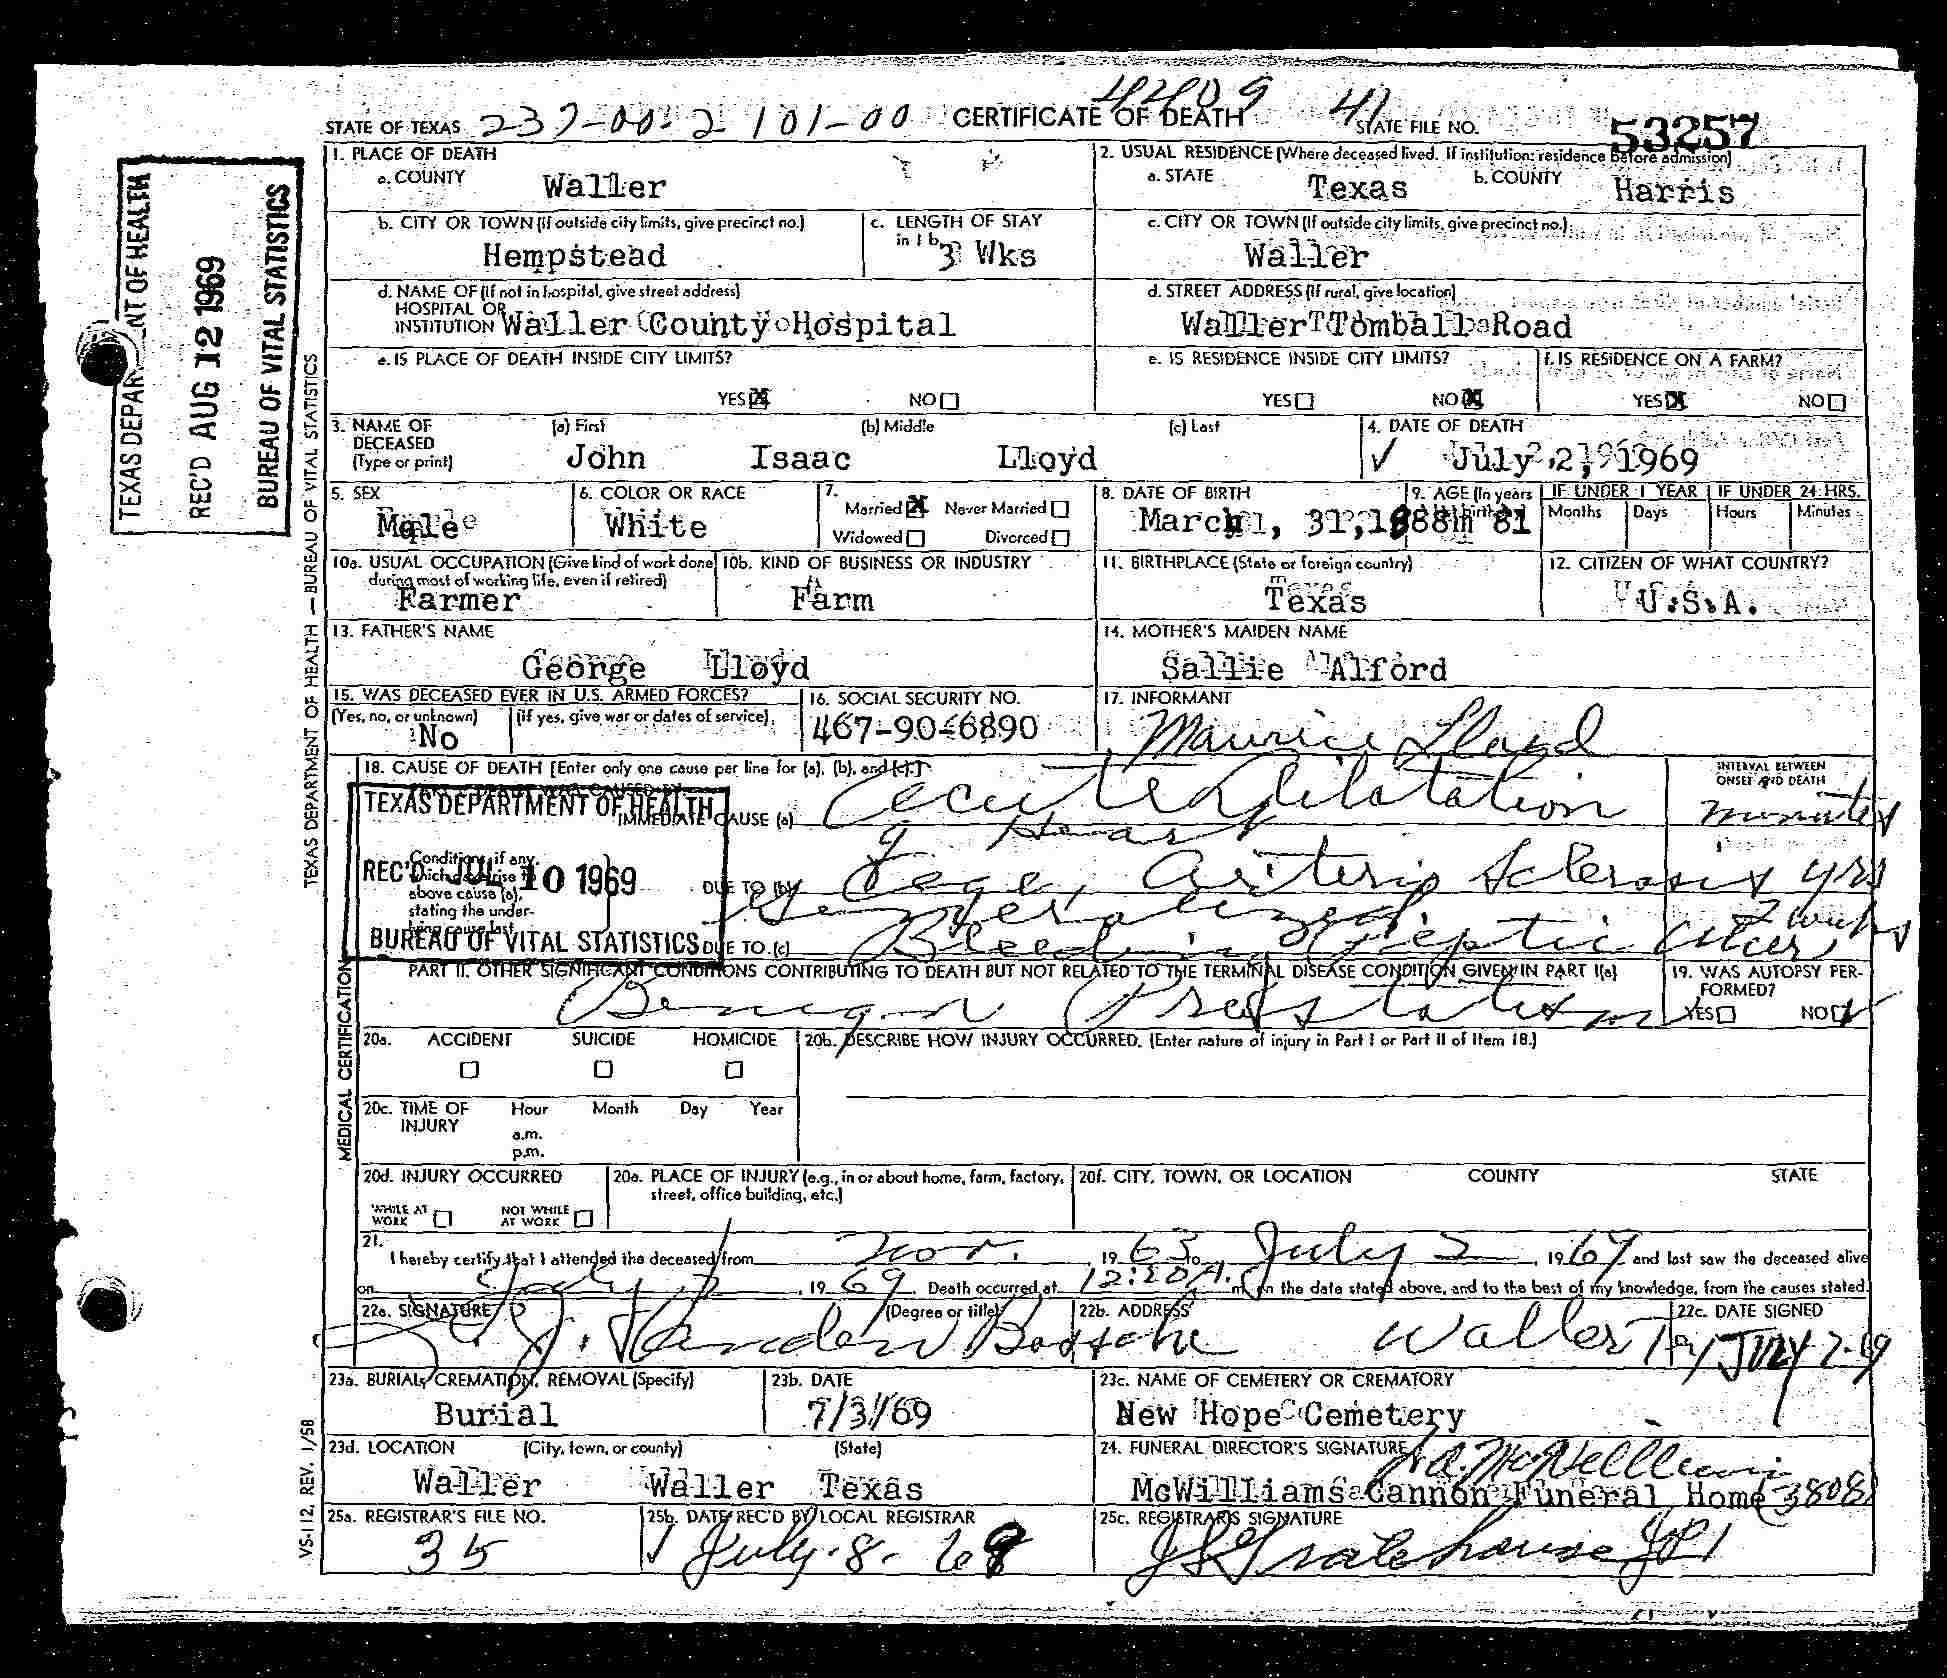 STATE OF TEXAS 237-00-2 101-00 CERTIFICATE OF DEATH 41 STATE FILE NO. 53257
1. PLACE OF DEATH
a. COUNTY Waller
2. USUAL RESIDENCE (Where deceased lived. If institution: residence before admission)
a. STATE Texas b. COUNTY Harris
b. CITY OR TOWN (If outside city limits, give precinct no.) Hempstead
c. LENGTH OF STAY in 1 b. 3 Wks
c. CITY OR TOWN (If outside city limits, give precinct no.) Waller
d. NAME OF (If not in hospital, give street address)
HOSPITAL OR
INSTITUTION Waller County Hospital
d. STREET ADDRESS (If rural, give location)
Waller Tomball Road
e. IS PLACE OF DEATH INSIDE CITY LIMITS?
YES X NO
e. IS RESIDENCE INSIDE CITY LIMITS?
YES NO X
f. IS RESIDENCE ON A FARM?
YES X NO
3. NAME OF DECEASED (Type or print)
(a) First (b) Middle (c) Last
John Isaac Lloyd
4. DATE OF DEATH
✓ July 2, 1969
5. SEX
Male
6. COLOR OR RACE
White
7. Married X Never Married
Widowed Divorced
8. DATE OF BIRTH
March 31, 1888
9. AGE (In years
81
IF UNDER 1 YEAR
Months Days
IF UNDER 24 HRS.
Hours Minutes
10a. USUAL OCCUPATION (Give kind of work done
during most of working life, even if retired)
Farmer
10b. KIND OF BUSINESS OR INDUSTRY
Farm
11. BIRTHPLACE (State or foreign country)
Texas
12. CITIZEN OF WHAT COUNTRY?
U.S.A.
13. FATHER'S NAME
George Lloyd
14. MOTHER'S MAIDEN NAME
Sallie Alford
15. WAS DECEASED EVER IN U.S. ARMED FORCES?
(Yes, no, or unknown) (If yes, give war or dates of service)
No
16. SOCIAL SECURITY NO.
467-90-6890
17. INFORMANT
Maurice Lloyd
18. CAUSE OF DEATH [Enter only one cause per line for (a), (b), and (c).]
INTERVAL BETWEEN
ONSET AND DEATH
IMMEDIATE CAUSE (a) Acute Dilatation
of Heart
minutes
Conditions, if any,
which gave rise to
above cause (a),
stating the under-
lying cause last.
DUE TO (b) Age, Arterio Sclerosis yrs
Generalized
DUE TO (c) Bleeding Peptic Ulcer, 2 weeks
TEXAS DEPARTMENT OF HEALTH
REC'D JUL 10 1969
BUREAU OF VITAL STATISTICS
PART II. OTHER SIGNIFICANT CONDITIONS CONTRIBUTING TO DEATH BUT NOT RELATED TO THE TERMINAL DISEASE CONDITION GIVEN IN PART I(a)
Benign Prostatism
19. WAS AUTOPSY PER-
FORMED?
YES NO ✓
20a. ACCIDENT SUICIDE HOMICIDE
20b. DESCRIBE HOW INJURY OCCURRED. (Enter nature of injury in Part I or Part II of Item 18.)
20c. TIME OF INJURY Hour Month Day Year
a.m.
p.m.
20d. INJURY OCCURRED
WHILE AT WORK NOT WHILE AT WORK
20e. PLACE OF INJURY (e.g., in or about home, farm, factory,
street, office building, etc.)
20f. CITY, TOWN, OR LOCATION COUNTY STATE
21.
I hereby certify that I attended the deceased from Nov. , 1963 to July 2 , 1969 and last saw the deceased alive
on July 2 , 1969. Death occurred at 12:20A. m on the date stated above, and to the best of my knowledge, from the causes stated.
22a. SIGNATURE (Degree or title)
22b. ADDRESS
Waller
22c. DATE SIGNED
23a. BURIAL, CREMATION, REMOVAL (Specify)
Burial
23b. DATE
7/3/69
23c. NAME OF CEMETERY OR CREMATORY
New Hope Cemetery
23d. LOCATION (City, town, or county) (State)
Waller Waller Texas
24. FUNERAL DIRECTOR'S SIGNATURE
McWilliams Cannon Funeral Home
25a. REGISTRAR'S FILE NO.
35
25b. DATE REC'D BY LOCAL REGISTRAR
✓ July-8-69
25c. REGISTRAR'S SIGNATURE
TEXAS DEPARTMENT OF HEALTH
REC'D AUG 12 1969
BUREAU OF VITAL STATISTICS
TEXAS DEPARTMENT OF HEALTH — BUREAU OF VITAL STATISTICS
MEDICAL CERTIFICATION
VS-112, REV. 1/58